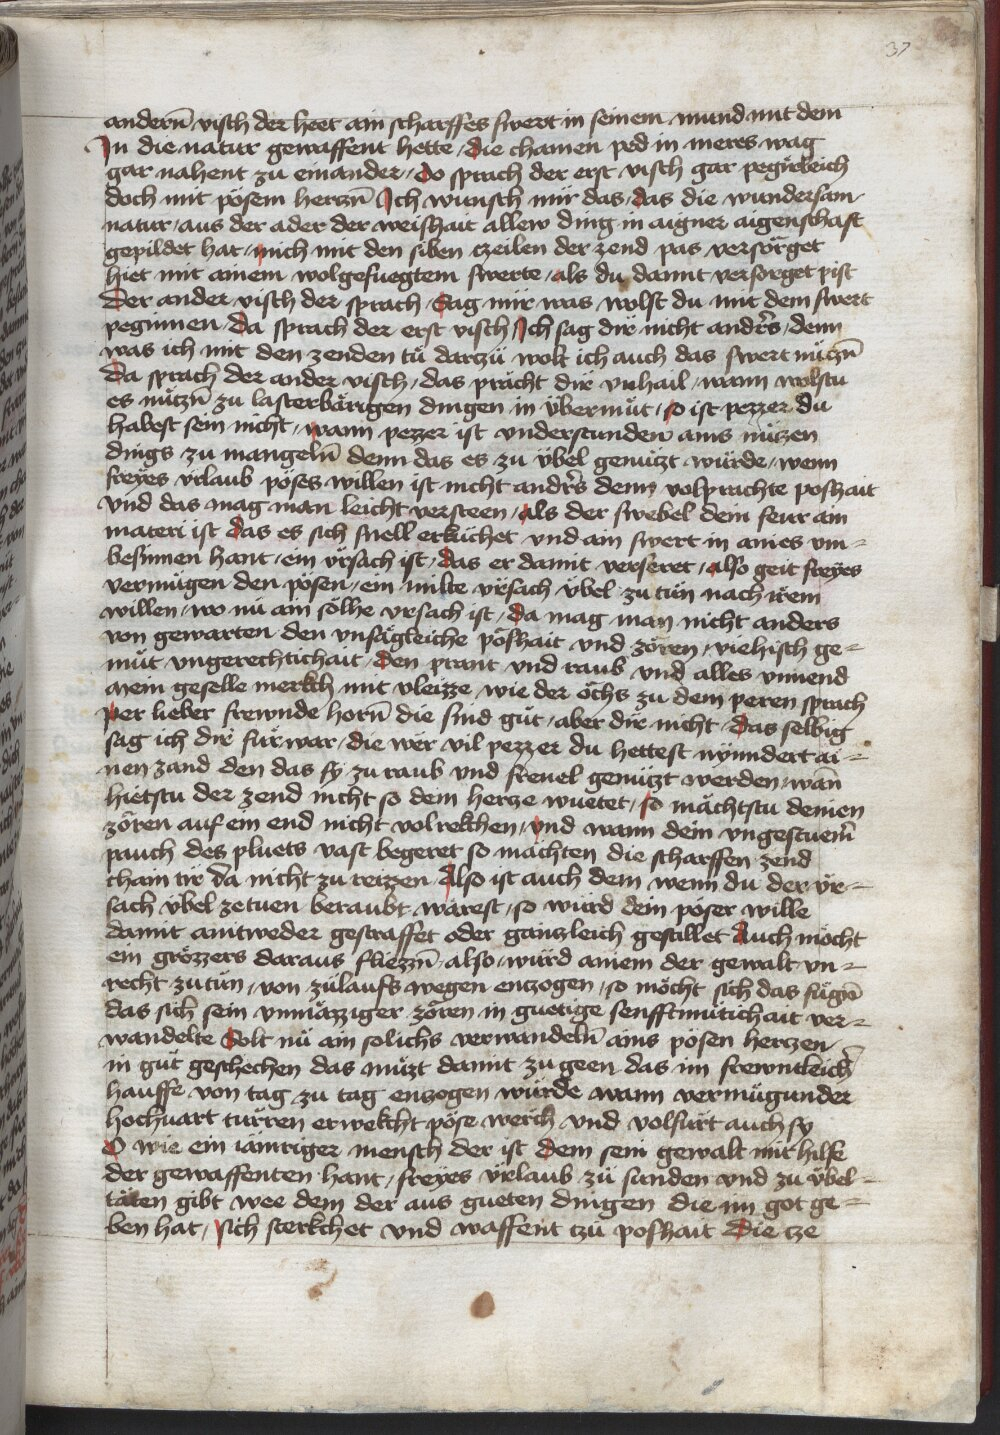 37
andern̄ visch der heet ain scharffes swert in seinem mund mit dem
In die natur gewaffent hette / die chamen ped in meres wag
gar nahent zu einander / Do sprach der erst visch gar pegirleich
doch mit pösem herczn̄ Ich wunsch mir das / das die wundersam
natur / aus der ader der weishait allew ding in aigner aigenschaft
gepildet hat / mich mit den siben czeilen der zend pas versorget
hiet mit ainem wolgefuegtem swerte / als du damit versorget pist
Der ander visch der sprach / Sag mir was wolst du mit dem swert
peginnen / Da sprach der erst visch / Ich sag dir nicht anders / denn
was ich mit den zenden tů darzů wolt ich auch das swert nüczn̄
Da sprach der ander visch / das prächt dir vnhail / wann wolstu
es nüczn̄ zu lasterbärigen dingen in übermut / so ist pezzer du
habest sein nicht / wann pezzer ist vnderstunden ains nüczen
dings zu mangeln̄ denn das es zu übel genüczt würde / wenn
freyes vrlaub pöses willen ist nicht anders denn volprachte poshait
vnd das mag man leicht versteen / als der swebel dem feur ain
materi ist das es sich snell erkücket vnd ain swert in aines vn=
besinnen hant / ein vrsach ist / das er damit verseret / also geit freyes
vermügen den pösen / ein milte vrsach übel zu tün nach irem
willen / wo nü ain sölhe vrsach ist / da mag man nicht anders
von gewarten den vnsägleiche poshait vnd zoren / viehisch ge=
müt vngerechtichait / den prant vnd raub vnd alles vnuend
Mein geselle merkch mit vleizze / wie der öchs zu dem peren sprach
per lieber frewnde horn̄ die sind güt / aber dir nicht / Das selbig
sag ich dir fur war / die wer vil pezzer du hettest nyndert ai=
nen zand den das sy zu raub vnd freuel genüczt werden / wan̄
hietstu der zend nicht so dein hercze wuetet / so mächtstu deinen
zoren auf ein end nicht volrekchen / vnd wann dein vngestuem̄
pauch des pluets vast begeret so mächten die scharffen zend
chain tir da nicht zu reizen Also ist auch dem wenn du der vr=
sach übel zetuen beraubt wärest / so würd dein pöser wille
damit aintweder gestraffet oder gänczleich gestillet Auch möcht
ein grözzers daraus fliezzn̄ / also / würd ainem der gewalt vn=
recht zutün / von zülaufs wegen enczogen / so möcht sich das fügn̄
das sich sein vnmäzziger zoren in guetige senfftmütichait ver=
wandelte Solt nü ain solichs verwandeln̄ ains pösen herczen
in güt geschechen das müzt damit zu geen das im frewntleich
hauffe von tag zu tag enczogen würde wann vermügunder
hochuart turren erwekcht pöse werch vnd volfürt auch sy
O wie ein iämriger mensch der ist dem sein gewalt mit hilfe
der gewaffenten hant / freyes vrlaub zů sunden vnd zu übel=
täten gibt wee dem der aus gueten dingen die im got ge=
ben hat / sich sterkchet vnd waffent czu poshait Die cze